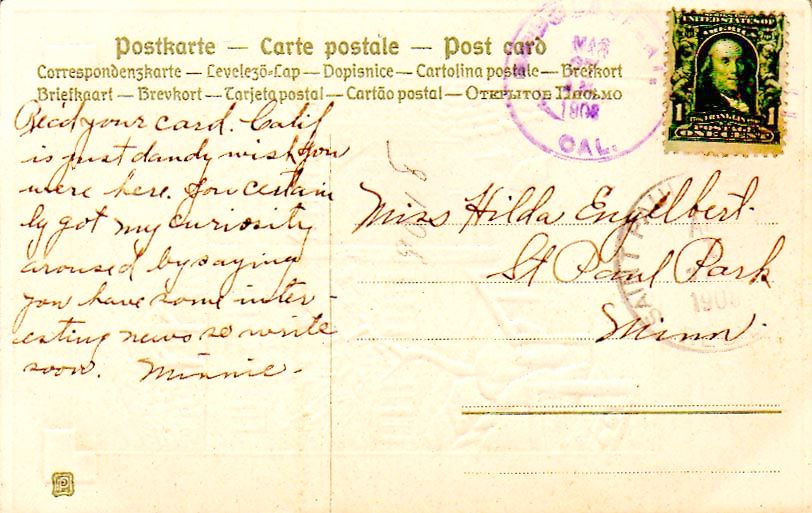 Postkarte — Carte postale — Post card
Correspondenzkarte — Levelezö-Lap — Dopisnice — Cartolina postale — Brefkort
Briefkaart — Brevkort — Tarjeta postal — Cartão postal — Открытое Письмо
MAR
1908
CAL.
UNITED STATES OF AMERICA
1 1
FRANKLIN
POSTAGE
ONE CENT
Rec'd your card. Calif
is just dandy wish you
were here. You certain
ly got my curiosity
aroused by saying
you have some inter-
esting news so write
soon. Minnie-
Miss Hilda Engelbert.
St Paul Park
Minn.
SAINT PAUL
1908
P